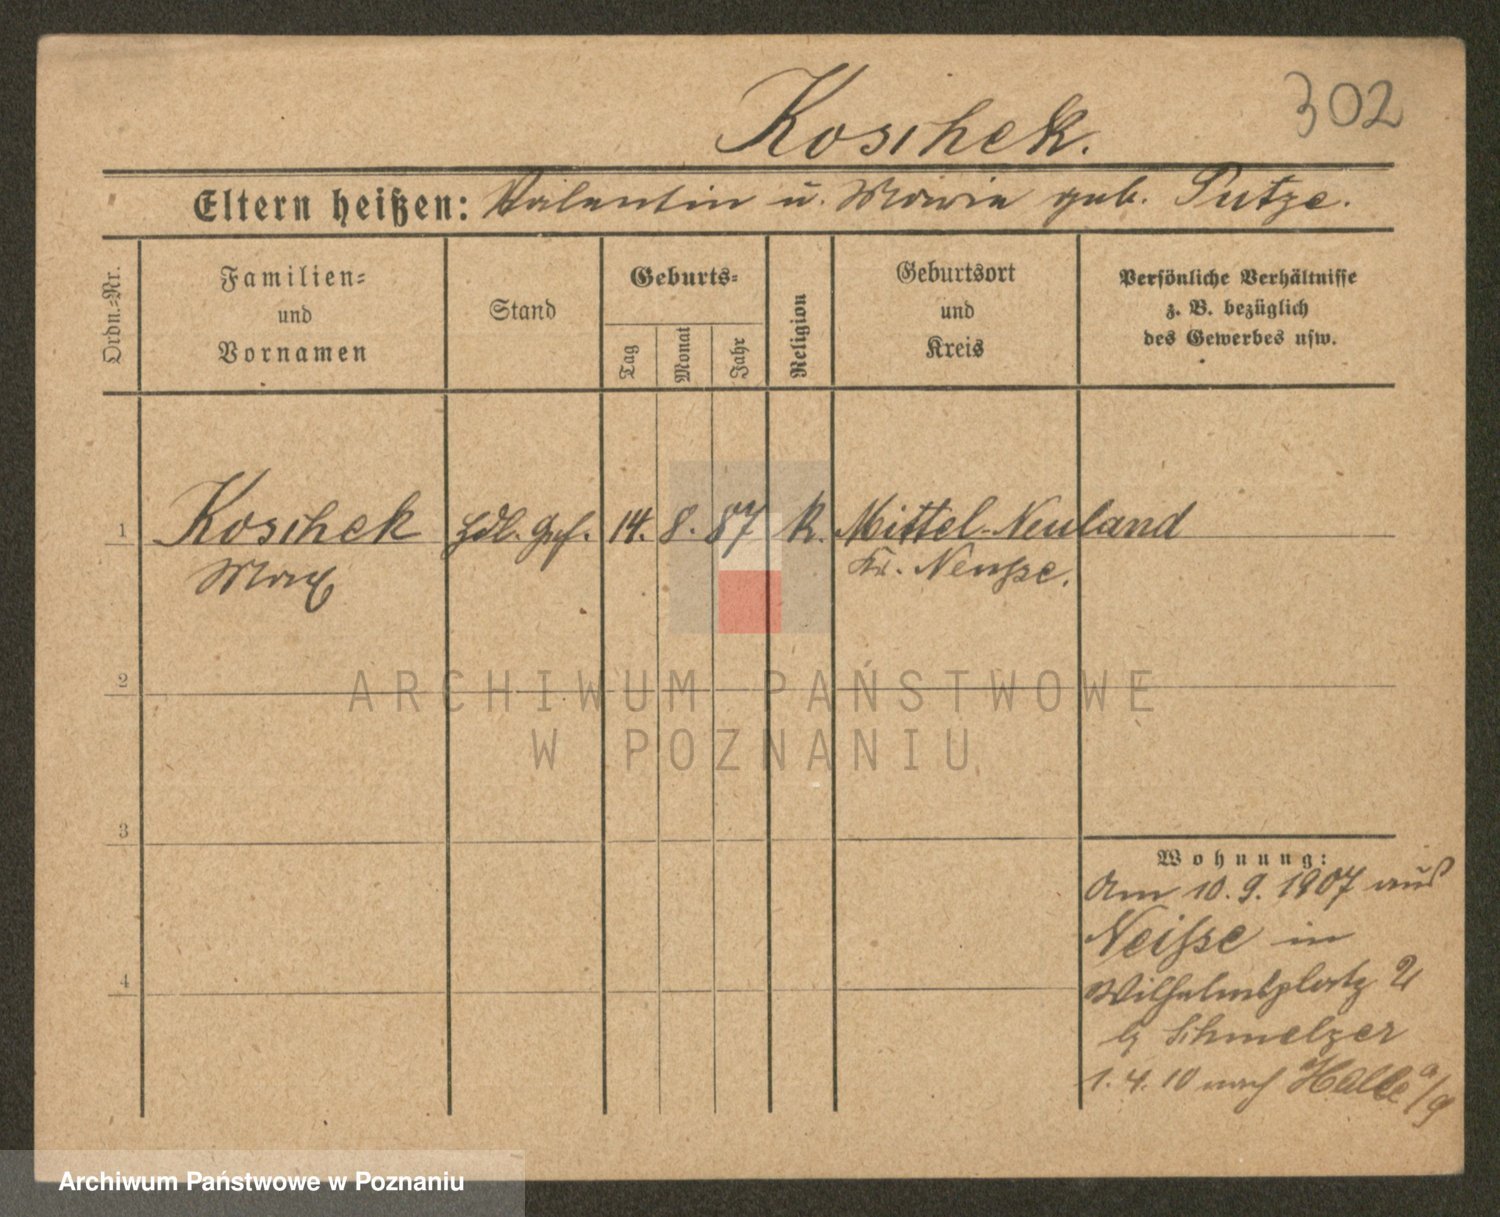 302
Koschek.
Eltern heißen: Valentin u. Maria geb. Putze.
Ordn.=Nr.
Familien=
und
Vornamen
Stand
Geburts=
Tag
Monat
Jahr
Religion
Geburtsort
und
Kreis
Persönliche Verhältnisse
z. B. bezüglich
des Gewerbes usw.
1 Koschek Hdl. Geh. 14. 8. 87 k. Mittel-Neuland
Max Kr. Neisse.
2
3
4
Wohnung:
Am 10. 9. 1907 aus
Neisse in
Wilhelmsplatz 2
b/ Schmelzer
1. 4. 10 nach Halle a/S
ARCHIWUM PAŃSTWOWE
W POZNANIU
Archiwum Państwowe w Poznaniu